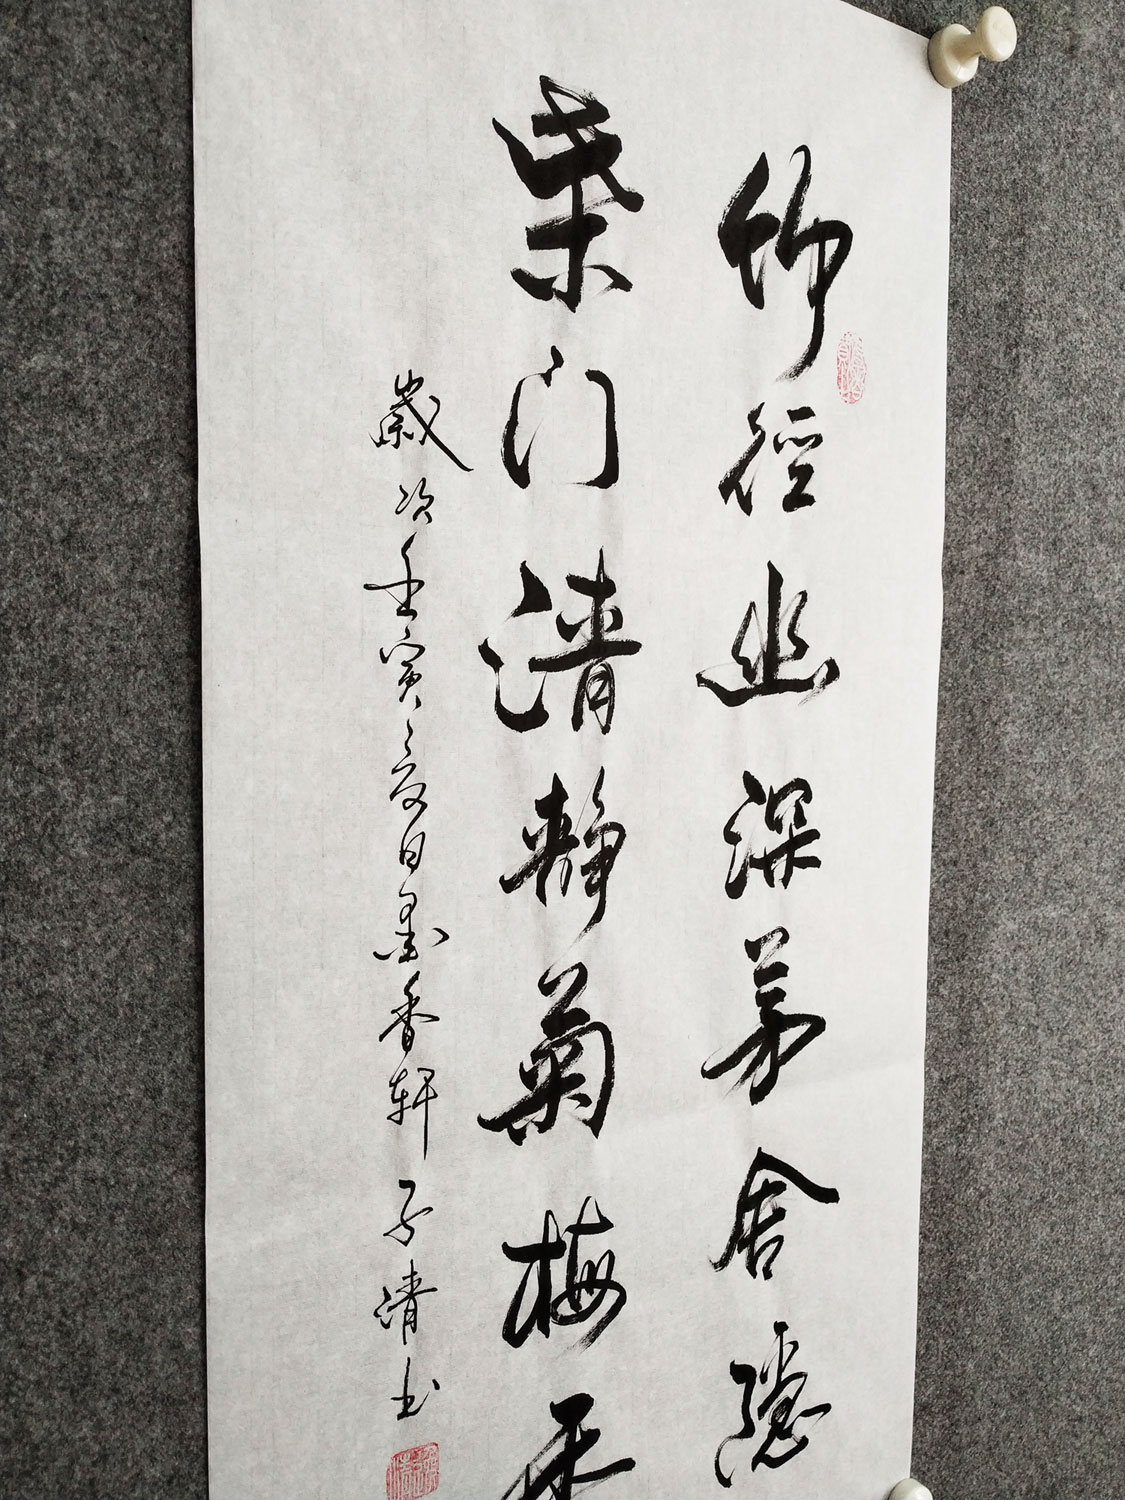 竹径幽深茅舍隐
柴门清静菊梅
岁次壬寅之夏日墨香轩子清书